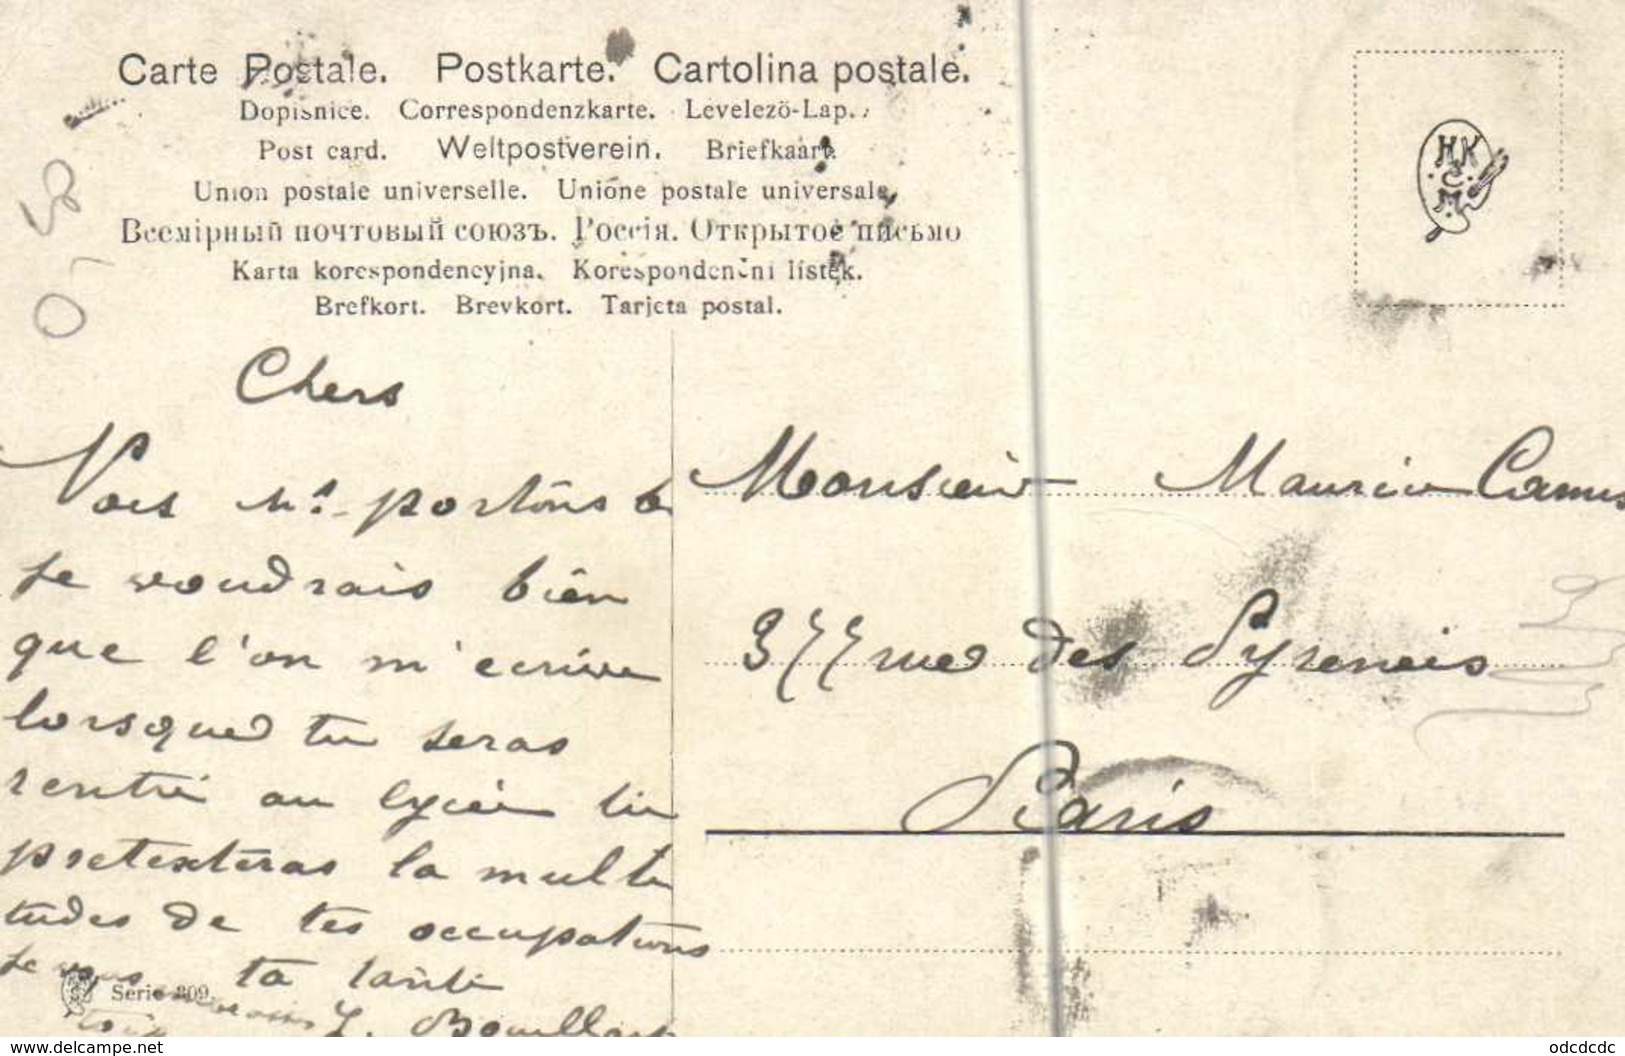 Carte Postale. Postkarte. Cartolina postale.
Dopisnice. Correspondenzkarte. Levelezö-Lap.
Post card. Weltpostverein. Briefkaart.
Union postale universelle. Unione postale universale,
Всемірный почтовый союзъ. Россія. Открытое письмо
Karta korespondencyjna. Korespondenčni lístek.
Brefkort. Brevkort. Tarjeta postal.
HK
&
C.
M.
Chers
portons
Je voudrais bien
que l'on m'ecrive
lorsque tu seras
rentré au lycée tu
pretexteras la multi
tudes de tes occupations
Je ta tante
Serie 809
Monsieur Maurice Camus
377 rue des Pyreneés
Paris
www.delcampe.net
odcdcdc